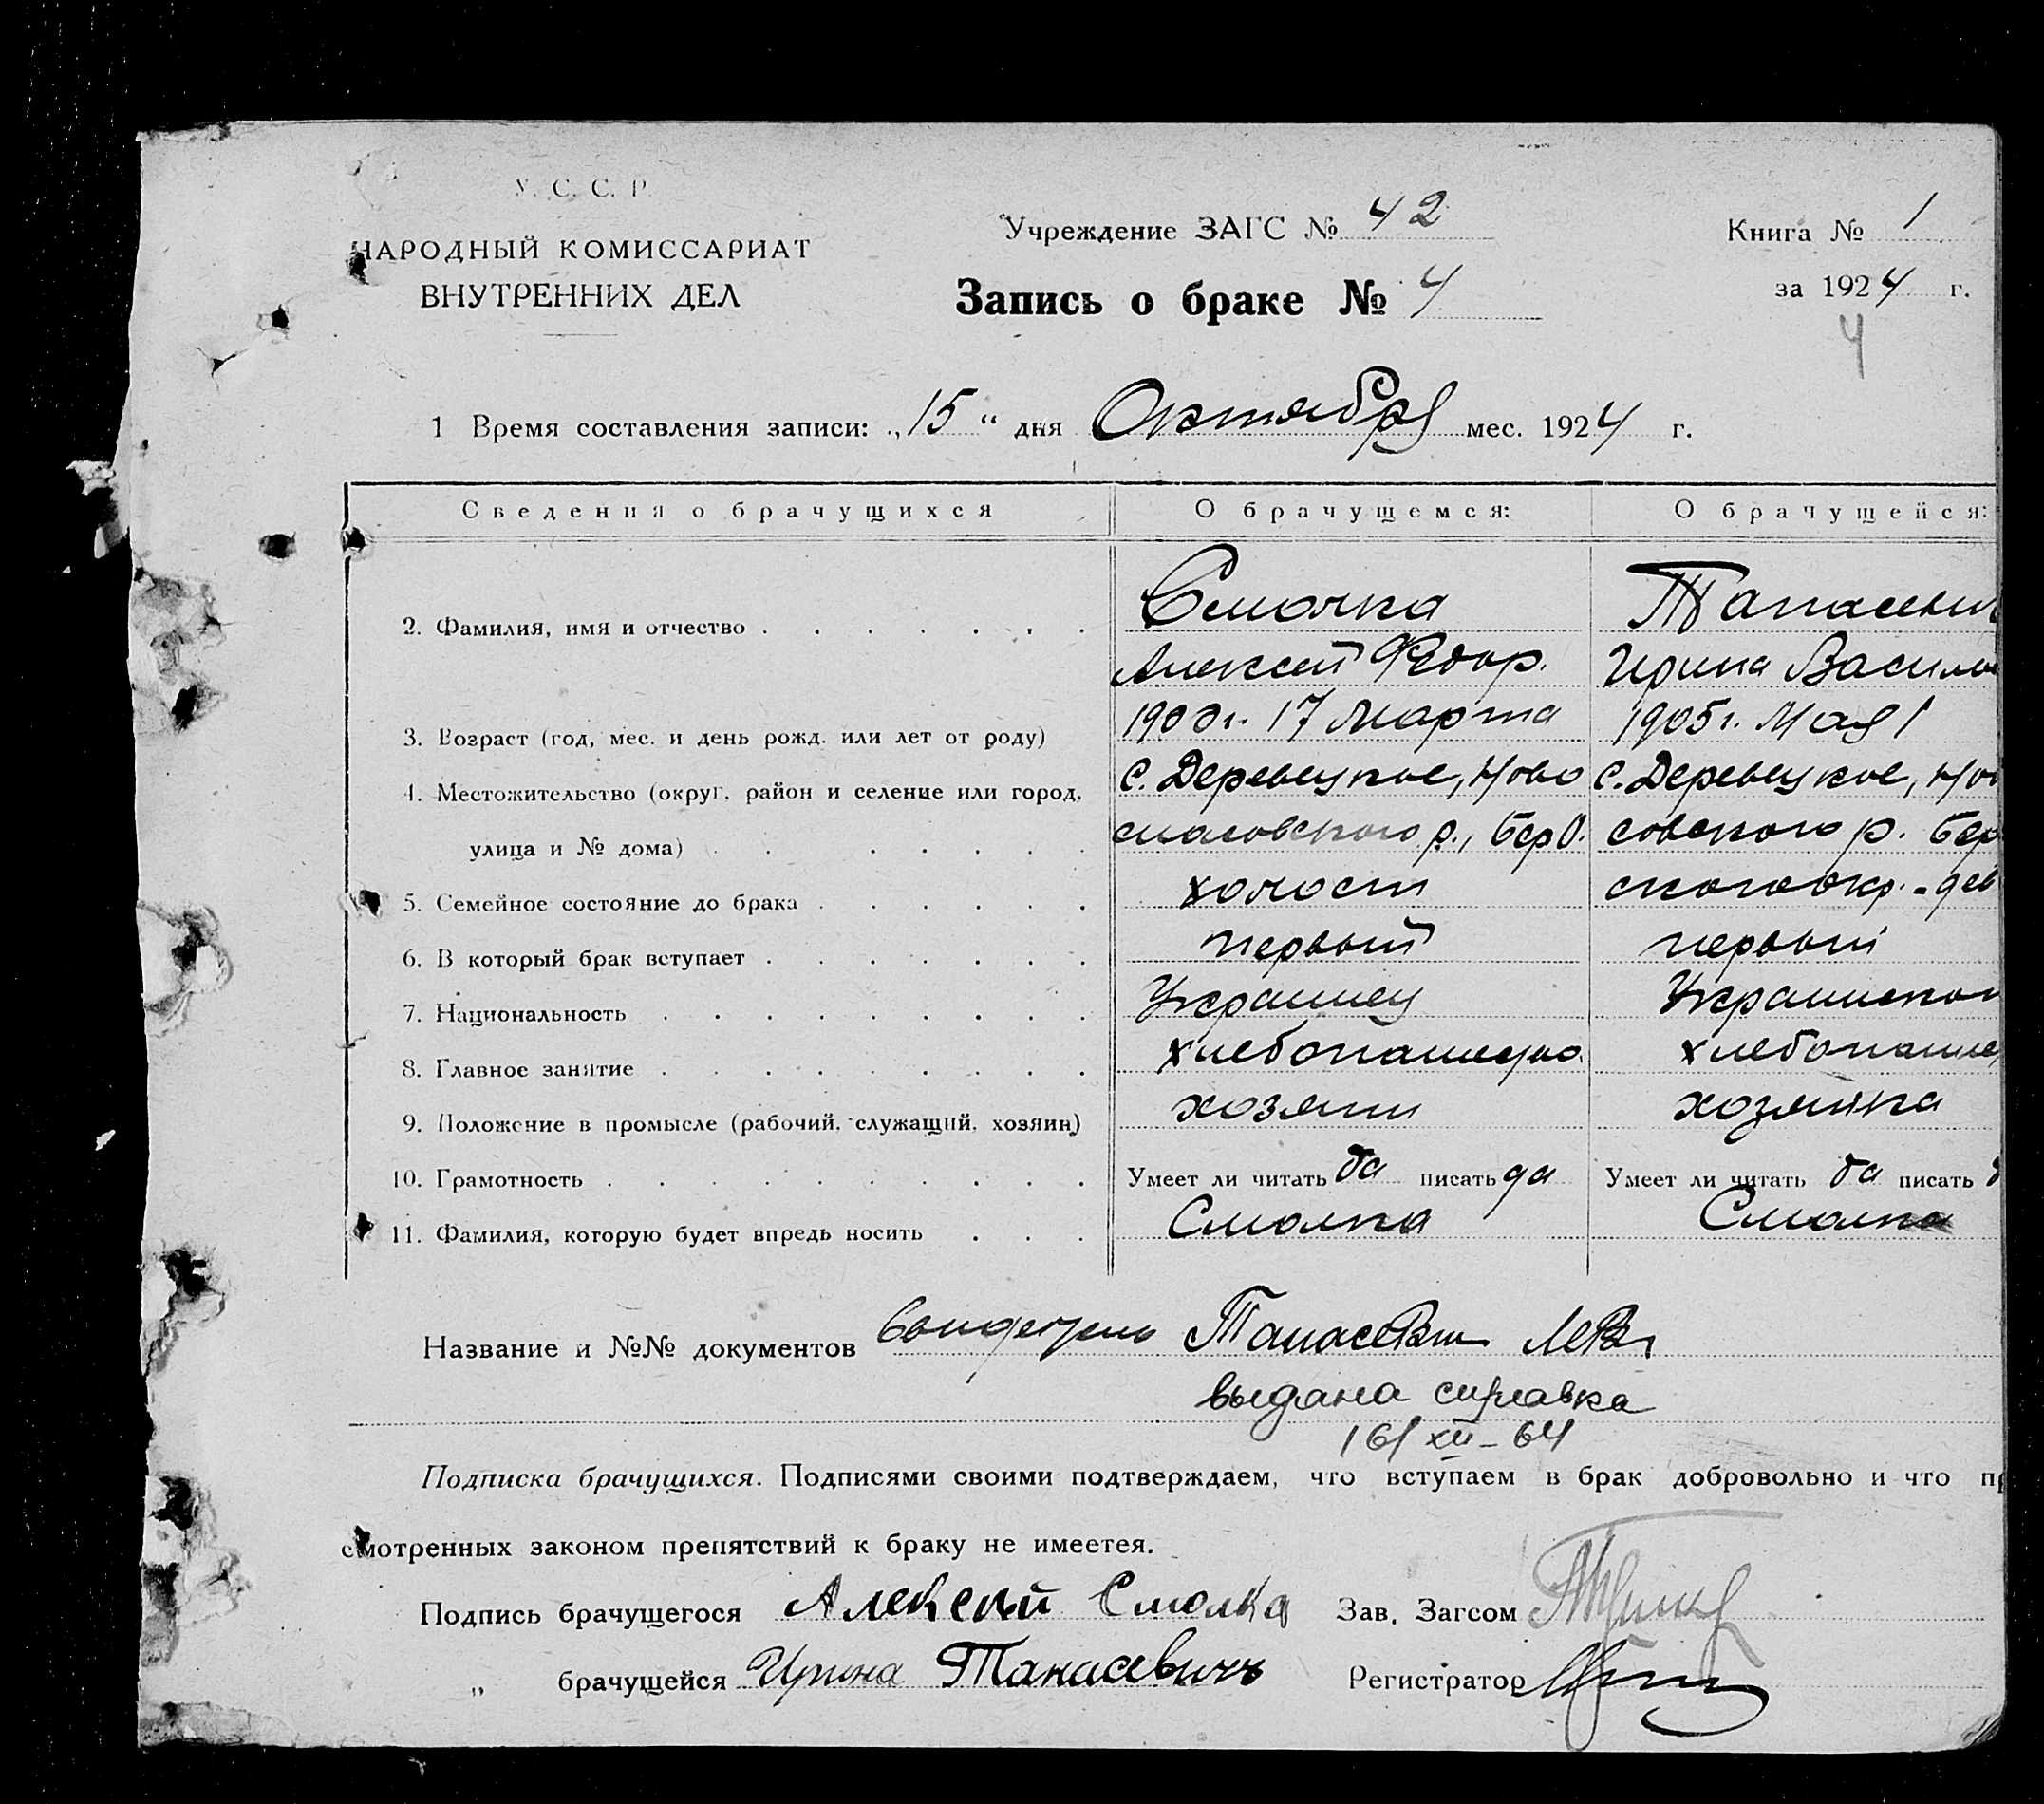 У. С. С. Р.
НАРОДНЫЙ КОМИССАРИАТ
ВНУТРЕННИХ ДЕЛ
Учреждение ЗАГС № 42
Книга № 1
Запись о браке № 4
за 1924 г.
4
1 Время составления записи: „15“ дня Октября мес. 1924 г.
Сведения о брачущихся О брачущемся: О брачущейся:
2. Фамилия, имя и отчество Смолка Танасеви
Алексей Федор. Ирина Василь
3. Возраст (год, мес. и день рожд. или лет от роду) 1900г. 17 Марта 1905г. Мая 1
4. Местожительство (округ, район и селение или город, с. Деревецкое, Ново с. Деревецкое, Нов
улица и № дома) спасовского р., Берд. совского р. Бер
5. Семейное состояние до брака холост ского окр. - дев
6. В который брак вступает первый первый
7. Национальность Украинец Украинской
8. Главное занятие хлебопашество хлебопаше
9. Положение в промысле (рабочий, служащий, хозяин) хозяин хозяйка
10. Грамотность Умеет ли читать да писать да Умеет ли читать да писать д
11. Фамилия, которую будет впредь носить Смолка Смолка
Название и №№ документов Свидетель Танасевич
выдана справка
16/XII-64
Подписка брачущихся. Подписями своими подтверждаем, что вступаем в брак добровольно и что пр
смотренных законом препятствий к браку не имеетея.
Подпись брачущегося Алексей Смолка Зав. Загсом
„ брачущейся Ирина Танасевичъ Регистратор